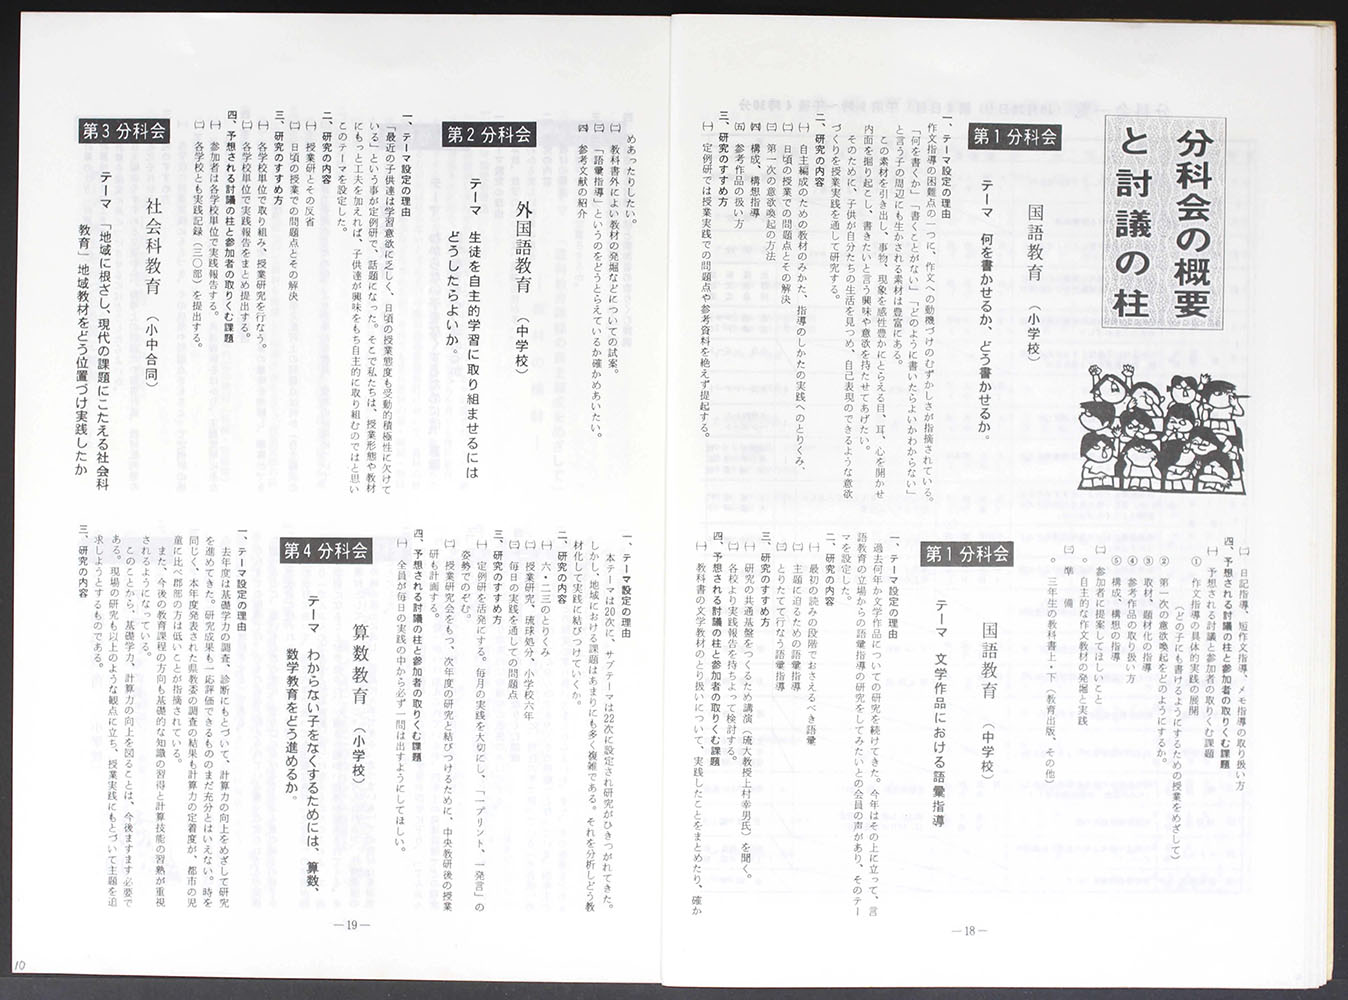 分科会の概要
と討議の柱
第1分科会
国語教育 (小学校)
テーマ 何を書かせるか、どう書かせるか。
一、テーマ設定の理由
作文指導の困難点の一つに、作文への動機づけのむずかしさが指摘されている。
「何を書くか」「書くことがない」「どのように書いたらよいかわからない」
と言う子の周辺にも生かされる素材は豊富にある。
この素材を引き出し、事物、現象を感性豊かにとらえる目、耳、心を開かせ
内面を掘り起こし、書きたいと言う興味や意欲を持たせてあげたい。
そのために、子供が自分たちの生活を見つめ、自己表現のできるような意欲
づくりを授業実践を通して研究する。
二、研究の内容
㈠ 自主編成のための教材のみかた、指導のしかたの実践へのとりくみ、
㈡ 日頃の授業での問題点とその解決
㈢ 第一次の意欲喚起の方法
㈣ 構成、構想指導
㈤ 参考作品の扱い方
三、研究のすすめ方
㈠ 定例研では授業実践での問題点や参考資料を絶えず提起する。
㈡ 日記指導、短作文指導、メモ指導の取り扱い方
四、予想される討議の柱と参加者の取りくむ課題
㈠ 予想される討議と参加者の取りくむ課題
① 作文指導の具体的実践の展開
(どの子にも書けるようにするための授業をめざして)
② 第一次の意欲喚起をどのようにするか。
③ 取材、題材化の指導
④ 参考作品の取り扱い方
⑤ 構成、構想の指導
㈡ 参加者に提案してほしいこと
。自主的な作文教材の発掘と実践
㈢ 準 備
。三年生の教科書上・下(教育出版、その他)
第1分科会
国語教育 (中学校)
テーマ 文学作品における語彙指導
一、テーマ設定の理由
過去何年か文学作品についての研究を続けてきた。今年はその上に立って、言
語教育の立場からの語彙指導の研究をしてみたいとの会員の声があり、そのテー
マを設定した。
二、研究の内容
㈠ 最初の読みの段階でおさえるべき語彙
㈡ 主題に迫るための語彙指導
㈢ とりたてて行なう語彙指導
三、研究のすすめ方
㈠ 研究の共通基盤をつくるため講演(琉大教授上村幸男氏)を聞く。
㈡ 各校より実践報告を持ちよって検討する。
四、予想される討議の柱と参加者の取りくむ課題
㈠ 教科書の文学教材のとり扱いについて、実践したことをまとめたり、確か
—18—
めあったりしたい。
㈡ 教科書外によい教材の発掘などについての試案。
㈢ 「語彙指導」というのをどうとらえているか確かめあいたい。
㈣ 参考文献の紹介
第2分科会
外国語教育 (中学校)
テーマ 生徒を自主的学習に取り組ませるには
どうしたらよいか。
一、テーマ設定の理由
「最近の子供達は学習意欲に乏しく、日頃の授業態度も受動的積極性に欠けて
いる」という事が定例研で、話題になった。そこで私たちは、授業形態や教材
にもっと工夫を加えれば、子供達が興味をもち自主的に取り組むのではと思い
このテーマを設定した。
二、研究の内容
㈠ 授業研とその反省
㈡ 日頃の授業での問題点とその解決
三、研究のすすめ方
㈠ 各学校単位で取り組み、授業研究を行なう。
㈡ 各学校単位で実践報告をまとめ提出する。
四、予想される討議の柱と参加者の取りくむ課題
㈠ 参加者は各学校単位で実践報告する。
㈡ 各学校とも実践記録(三〇部)を提出する。
第3分科会
社会科教育 (小中合同)
テーマ 「地域に根ざし、現代の課題にこたえる社会科
教育」地域教材をどう位置づけ実践したか
一、テーマ設定の理由
本テーマは20次に、サブテーマは22次に設定され研究がひきつがれてきた。
しかし、地域における課題はあまりにも多く複雑である。それを分析しどう教
材化して実践に結びつけていくか。
二、研究の内容
㈠ 六・二三のとりくみ
㈡ 授業研究、琉球処分、小学校六年
㈢ 毎日の実践を通しての問題点
三、研究のすすめ方
㈠ 定例研を活発にする。毎月の実践を大切にし、「一プリント、一発言」の
姿勢でのぞむ。
㈡ 授業研究会をもつ、次年度の研究と結びつけるために、中央教研後の授業
研も計画する。
四、予想される討議の柱と参加者の取りくむ課題
㈠ 全員が毎日の実践の中から必ず一問は出すようにしてほしい。
第4分科会
算数教育 (小学校)
テーマ わからない子をなくするためには、算数、
数学教育をどう進めるか。
一、テーマ設定の理由
去年度は基礎学力の調査、診断にもとづいて、計算力の向上をめざして研究
を進めてきた。研究成果も一応評価できるもののまだ充分とはいえない。時を
同じく、本年度発表された県教委の調査の結果も計算力の定着度が、都市の児
童に比べ郡部の方は低いことが指摘されている。
また、今後の教育課程の方向も基礎的な知識の習得と計算技能の習熟が重視
されるようになっている。
このことから、基礎学力、計算力の向上を図ることは、今後ますます必要で
ある。現場の研究も以上のような観点に立ち、授業実践にもとづいて主題を追
求しようとするものである。
三、研究の内容
—19—
10